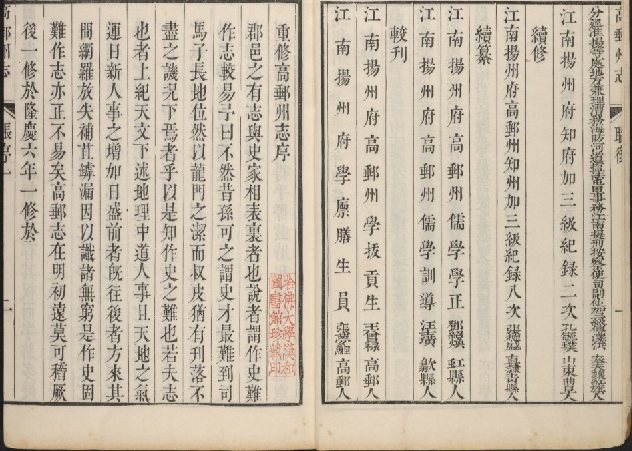 高郵州志
江南揚州府知府加三級紀錄二次 山東曲阜人
續修
江南揚州府高郵州知州加三級紀錄八次
續纂
江南揚州府高郵州儒學學正 虹縣人
江南揚州府高郵州儒學訓導 歙縣人
江南揚州府高郵州學拔貢生 高郵人
較刊
江南揚州府學廩膳生員 高郵人
重修高郵州志序
哈佛大學漢和
圖書館珍藏印
郡邑之有志與史家相表裏者也說者謂作史難
作志較易予曰不然昔孫可之謂史才最難到司
馬子長地位然以龍門之潔而叔皮猶有刊落不
盡之譏況下焉者乎以是知作史之難也若夫志
也者上紀天文下述地理中道人事且天地之氣
運日新人事之增如日盛前者旣往後者方來其
間網羅放失補苴罅漏因以譏諸無窮是作史固
難作志亦正不易矣高郵志在明初遠莫可稽厥
後一修於隆慶六年一修於
高郵州志